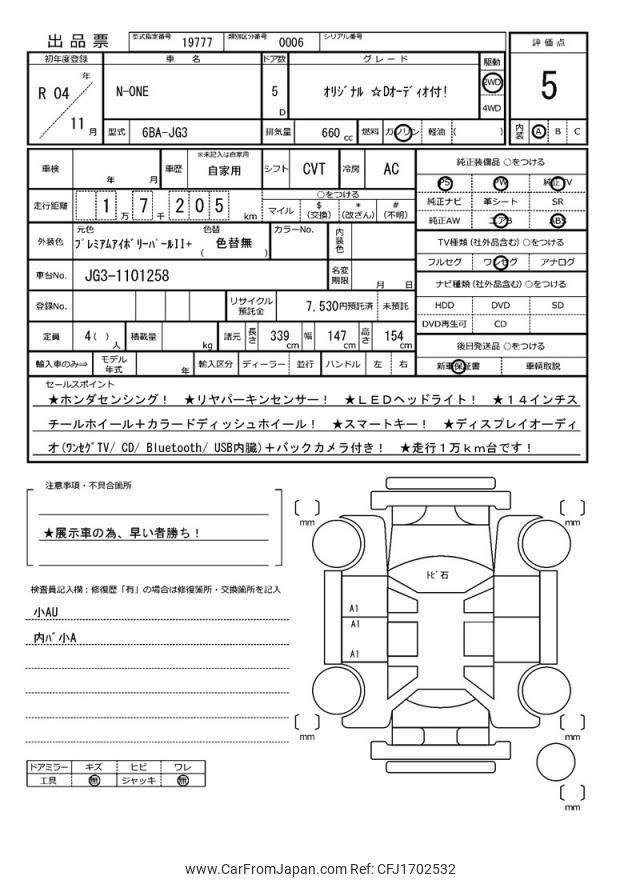 出品票 型式指定番号 19777 類別区分番号 0006 シリアル番号
評価点
5
内装 A B C
初年度登録 車名 ドア数 グレード 駆動
R 04 年 11 月
N-ONE 5 D オリジナル ☆Dオーディオ付! 2WD
4WD
型式 6BA-JG3 排気量 660 cc 燃料 ガソリン 軽油 ( )
車検 年 月 車歴 ※未記入は自家用 自家用 シフト CVT 冷房 AC
走行距離 1 万 7 千 2 0 5 km ○をつける
マイル $ (交換) * (改ざん) # (不明)
外装色 元色 プレミアムアイボリーパールII+ 色替 色替無 ( ) カラーNo. 内装色
車台No. JG3-1101258 名変期限 月 日
登録No. リサイクル預託金 7,530円預託済 未預託
定員 4( ) 人 積載量 kg 諸元 長さ 339 cm 幅 147 cm 高さ 154 cm
輸入車のみ⇒ モデル年式 年 輸入区分 ディーラー 並行 ハンドル 左 右
純正装備品 ○をつける
PS PW 純正TV
純正ナビ 革シート SR
純正AW エアB ABS
TV種類(社外品含む)○をつける
フルセグ ワンセグ アナログ
ナビ種類(社外品含む)○をつける
HDD DVD SD
DVD再生可 CD
後日発送品 ○をつける
新車保証書 車輌取説
セールスポイント
★ホンダセンシング! ★リヤパーキンセンサー! ★LEDヘッドライト! ★14インチス
チールホイール+カラードディッシュホイール! ★スマートキー! ★ディスプレイオーディ
オ(ワンセグTV/ CD/ Bluetooth/ USB内臓)+バックカメラ付き! ★走行1万km台です!
注意事項・不具合箇所
★展示車の為、早い者勝ち!
検査員記入欄:修復歴「有」の場合は修復箇所・交換箇所を記入
小AU
内バ小A
ドアミラー キズ ヒビ ワレ
工具 無 ジャッキ 無
[ ] mm
[ ] mm
トビ石
A1
A1
A1
[ ] mm
[ ] mm
[ ] mm
www.CarFromJapan.com Ref: CFJ1702532